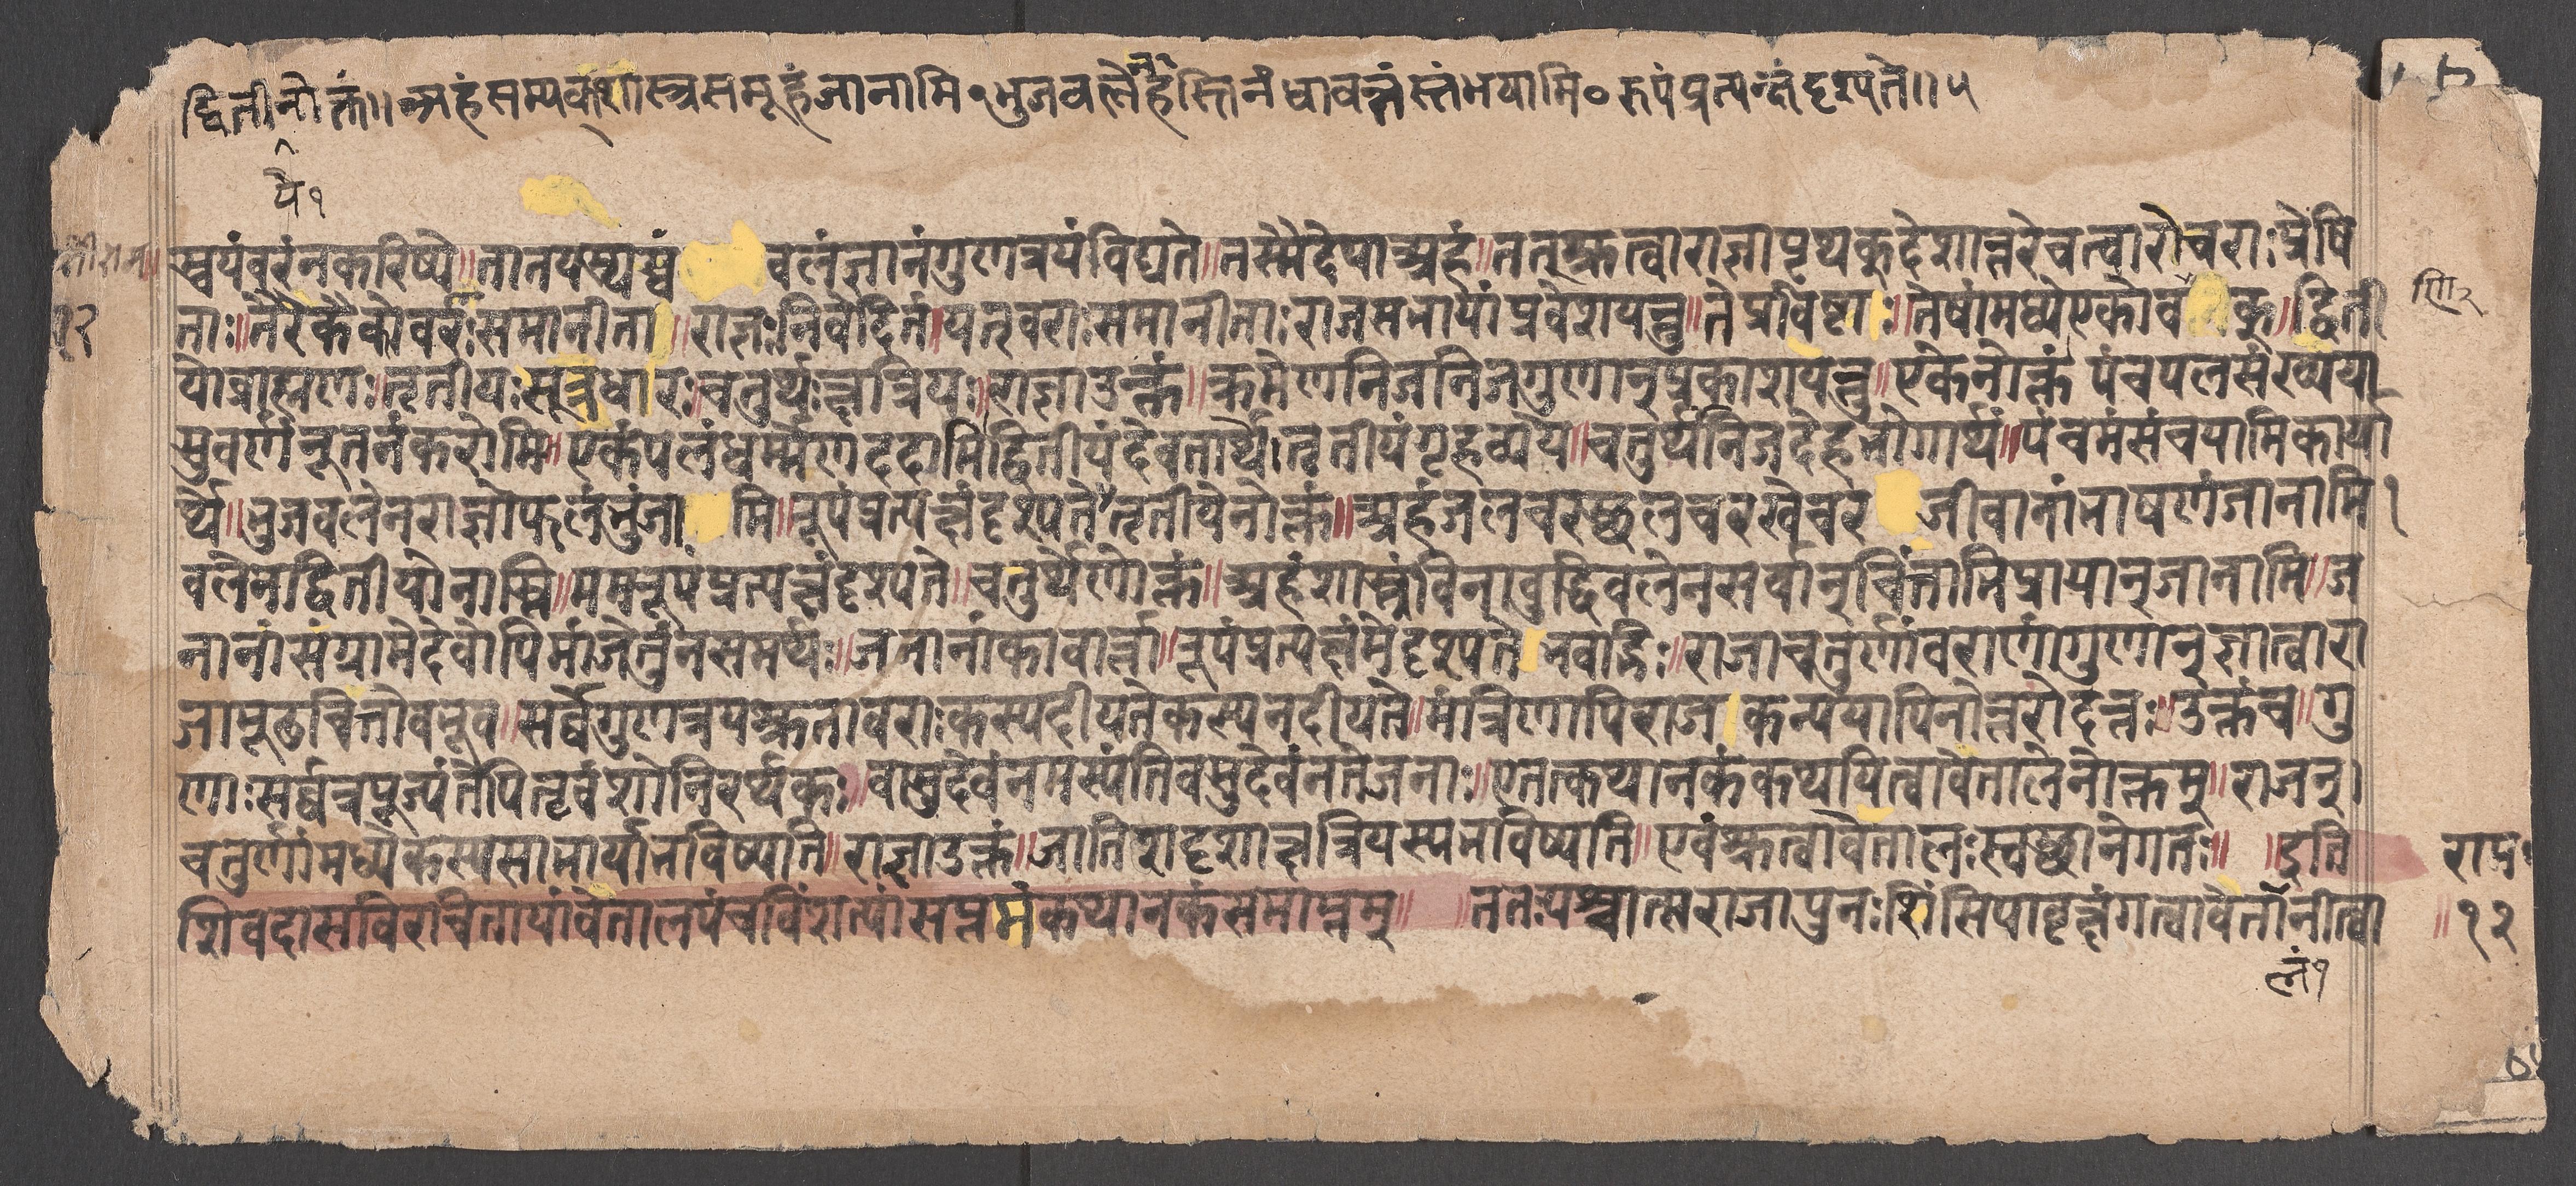 द्वितीनोक्तं॥ अहं सम्यक् शास्त्रसमूहं जानामि १ भुजबलेन हस्तिनं धावन्तं स्तंभयामि ० रूपं प्रत्यक्षं दृश्यते॥ ५
ये १
स्वयंवरंनकरिष्ये॥तातयस्य वलंज्ञानंगुणत्रयंविद्यते॥तस्मैदेयाअहं॥तत्श्रुत्वाराज्ञापृथक्देशान्तरेचत्वारोचराःप्रेषि
ताः॥तैरेकैकोवरःसमानीता॥राज्ञःनिवेदितं।यत्वराःसमानीताःराजसभायांप्रवेशयन्तु॥तेप्रविष्टाः॥तेषांमध्येएको द्विती
योब्राह्मणः॥तृतीयःसूत्रधारः॥चतुर्थःक्षत्रियः॥राज्ञाउक्तं॥क्रमेणनिजनिजगुणान्प्रकाशयन्तु॥एकेनोक्तं पंचपलसंख्यया
सुवर्णंनूतनंकरोमि॥एकंपलंधर्म्मेणददामिद्वितीयंदेवतार्थे।तृतीयंगृहव्यये॥चतुर्थंनिजदेहभोगार्थं॥पंचमंसंचयामिकार्या
र्थे॥भुजवलेनराज्ञोफलंभुंजामि॥रूपंप्रत्यक्षंदृश्यते॥तृतीयेनोक्तं॥अहंजलचरस्थलचरखेचर जीवानांभाषणंजानामि।
वलेनद्वितीयोनास्मि॥ममरूपंप्रत्यक्षंदृश्यते॥चतुर्थेणोक्तं॥अहंशास्त्रंविनाबुद्धिवलेनसर्वान्चिंताभिप्रायान्जानामि॥ज
नानांसंग्रामेदेवोपिमांजेतुंनसमर्थः॥जनानांकावार्त्ता॥रूपंप्रत्यक्षंमेदृश्यते भवद्भिः॥राजाचतुर्णांवराणांगुणान्ज्ञात्वारा
जामूढचित्तोवभूव॥सर्व्वेगुणत्रयश्रुतावराःकस्यदीयतेकस्यनदीयते॥मंत्रिणापिराज कन्ययापिनोत्तरोदत्तः॥उक्तंच॥गु
णाःसर्व्वत्रपूज्यंतेपितृवंशोनिरर्थकः॥वासुदेवंनमस्यंतिवसुदेवंनतेजनाः॥एतत्कथानकंकथयित्वावेतालेनोक्तम्॥राजन्।
चतुर्णांमध्येकस्यसाभार्याभविष्यति॥राज्ञाउक्तं॥जातिशदृशाक्षत्रियस्यभविष्यति॥एवंश्रुत्वावेतालःस्वस्थानेगतः॥ ॥इति
शिवदासविरचितायांवेतालपंचविंशत्यांसप्तमंकथानकंसमाप्तम्॥ ॥ततःपश्चात्मराजापुनःशिंसिपावृक्षंगत्वावेतानीत्वा
राम
॥१२
लं१